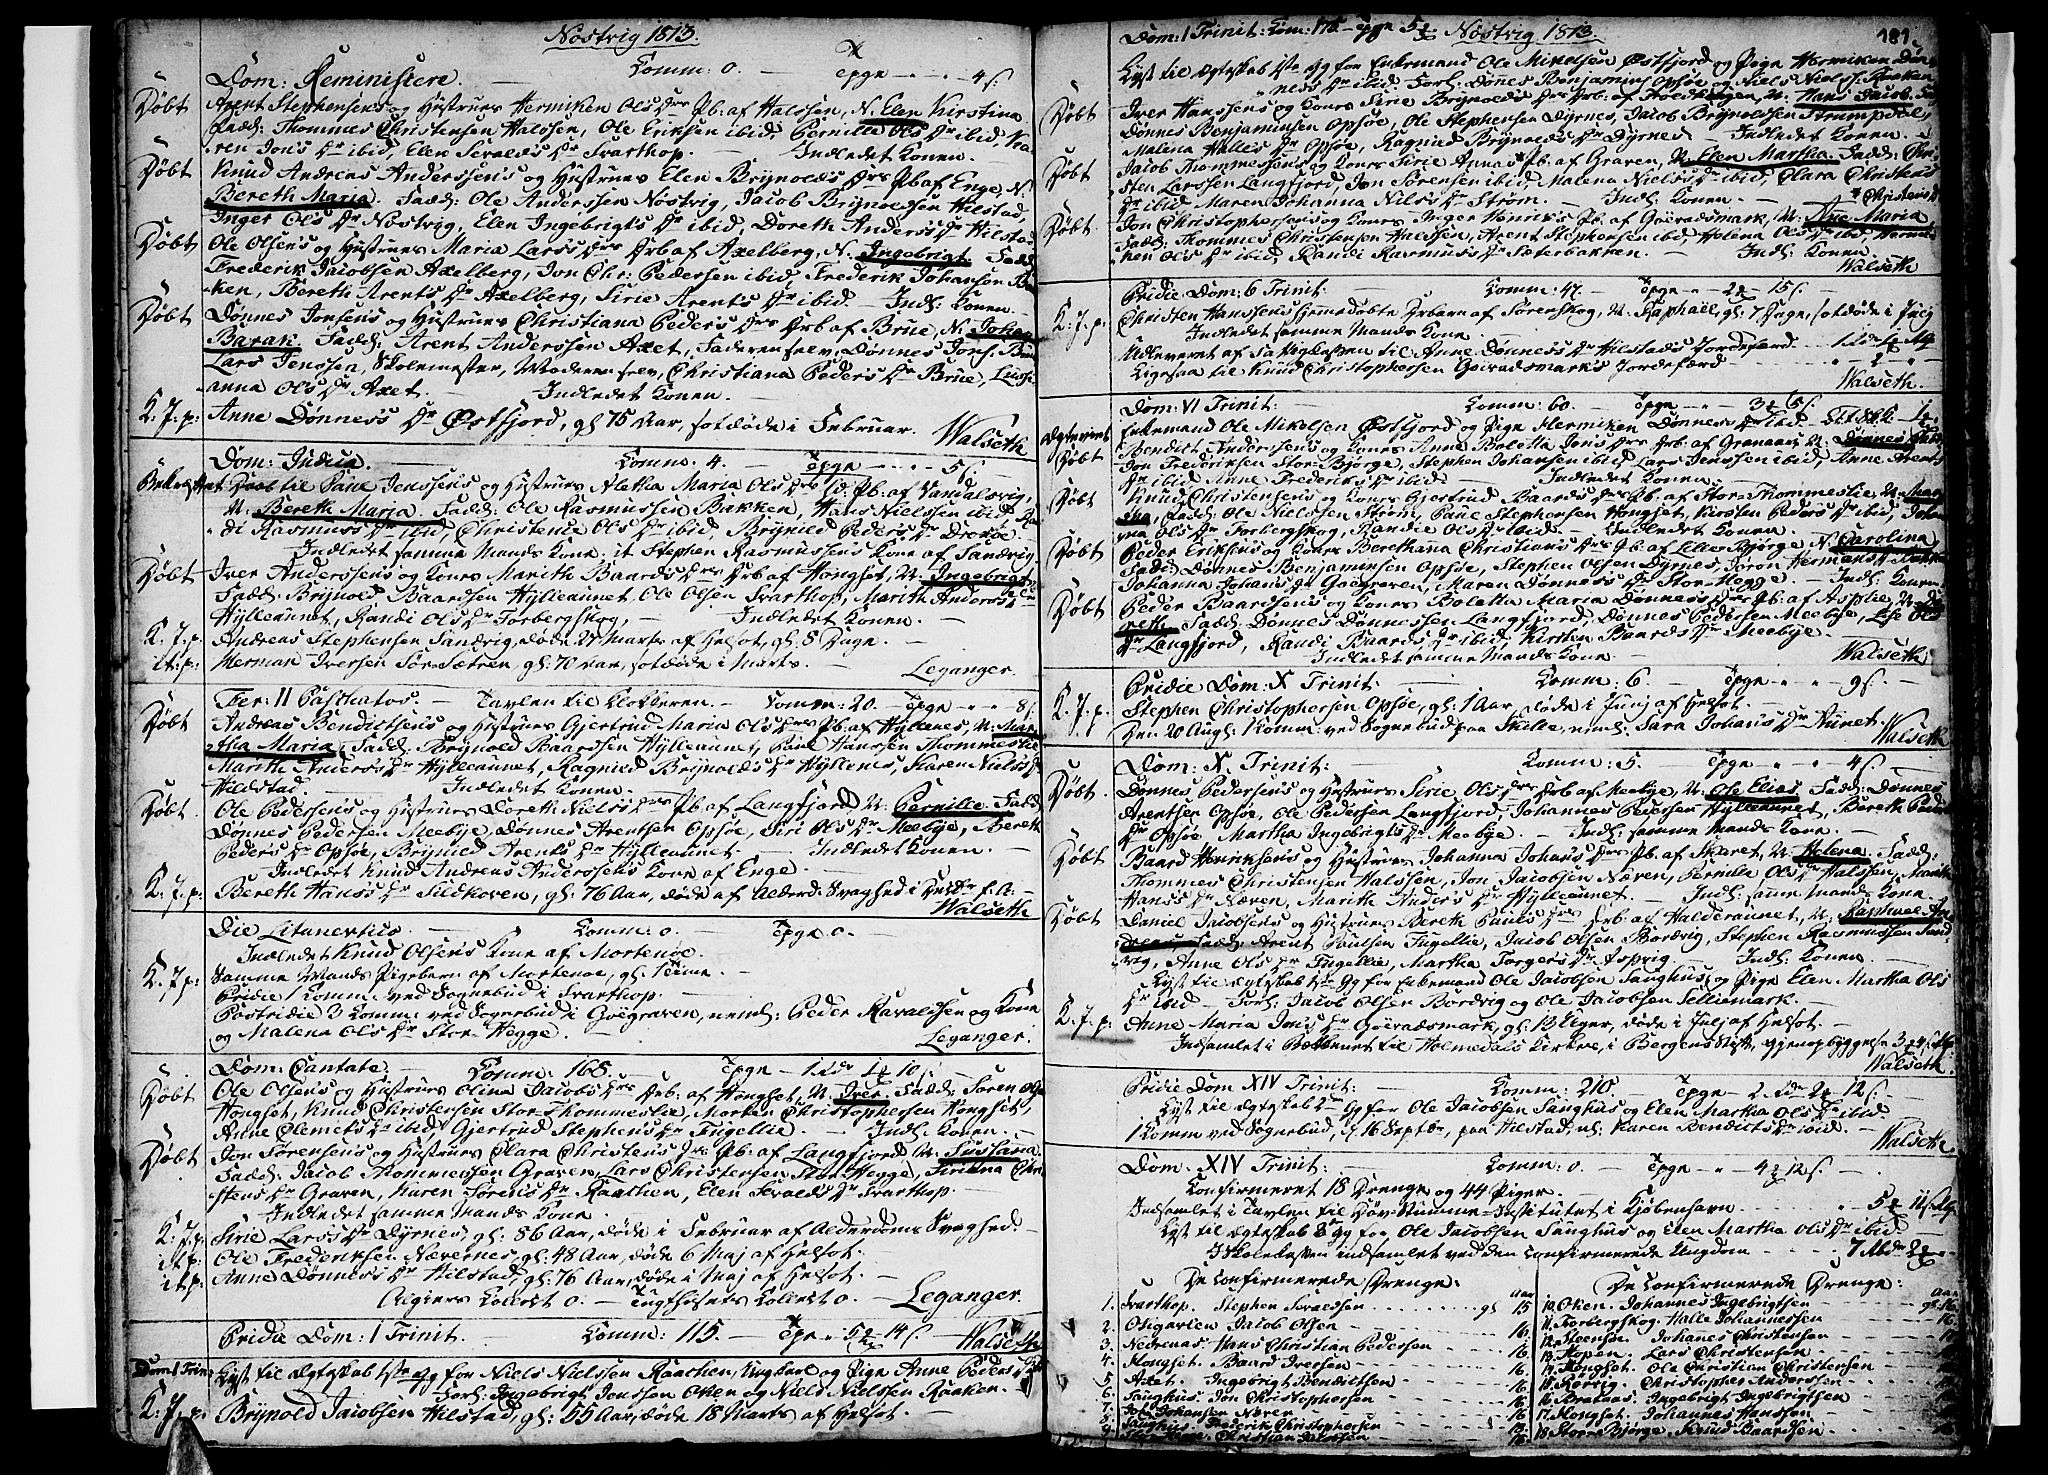 Nöstvig 1813.
Dom: Reministere Comm: 0. — Tpge " " 4 s.
Döbt Arent Stephensens og Hustrues Hermiken Ols Dr Pb: af Halssen, N. Elen Kirstina
Fadd: Thommes Christensen Halssen, Ole Eriksen ibid, Pernille Ols Dr ibid, Ka-
ren Jons Dr ibid, Elen Sevalds Dr Svarthop. — Indledet Konen. —
Döbt Knud Andreas Anderssens og Hustrues Elen Brynolds Drs Pb af Enge, N.
Bereth Maria. Fadd: Ole Anderssen Nostvig, Jacob Brynoldsen Hilstad,
Inger Ols Dr Nostvig, Elen Ingebrigts Dr ibid, Doreth Anders Dr Hilsta-
Döbt Ole Olsens og Hustrues Maria Lars's Drs Drb af Axelberg, N. Ingebrigt Fadd
Frederik Jacobsen Axelberg, Jon Chr: Pedersen ibid, Frederik Johansen
ken, Bereth Arents Dr Axelberg, Sirie Arents Dr ibid. — Indl: Konen. —
Döbt Dønnes Jonsens og Hustrues Christiana Peders Drs Drb af Brue, N. Johan
Barak. Fadd: Arent Anderssen Axet, Faderen selv: Dønnes Jons. Brue
Lars Jenssen, Skolemester, Moderen selv, Christiana Peders Dr Brue,
anna Ols Dr Axet. — Indledet Konen. —
K. J. p: Anne Dønness Dr Østfjord, gl 75 Aar, sotdøde i Februar. Walseth
Dom: Judica. Comm: 4. — Tpge " " 5 s.
til Paul Jenssens og Hustrues Aletha Maria Ols Drs Pb: af Vandalsvig,
N: Bereth Maria. Fadd: Ole Rasmussen Bakken, Hans Nielssen ibid, Ran
di Rasmuss Dr ibid, Christence Ols Dr ibid, Brynild Peders Dr
Indledet samme Mands Kone: it Stephen Rasmussens Kone af Sandvig.
Döbt Iver Anderssens og Kones Marith Baards Drs Drb af Hongset, N: Ingebrigt
Fadd: Brynold Baardsen Hylleaunet, Ole Olsen Svarthop, Marith Anders Dr
Hylleaunet, Randi Ols Dr Torbergskog, — Indledet Konen. —
K. J. p. Andreas Stephensen Sandvig, døde 24 Marts af Helsot, gl: 8 Dage. —
it: p: Herman Iversen Sör-Sætren, gl: 70 Aar, sotdøde i Marts. — Leganger.
Fer: II Paschatos. — Tavlen til Klokkeren. — Comm: 20. — Tpge " " 8 s.
Döbt Andreas Bendictsens og Hustrues Gjertrud Maria Ols Drs Pb: af Hyllenes, N: Mar-
tha Maria, Fadd: Brynold Baardsen Hylleaunet, Paul Hanssen Thommeslie
Marith Anders Dr Hylleaunet, Ragnild Brynolds Dr Hyllenes, Karen Niels Dr
Hilstad. — Indledet Konen. —
Döbt Ole Pedersens og Hustrues Doreth Niels Drs Pb: af Langfjord, N: Pernille Fadd:
Dønnes Pedersen Meebye, Dønnes Arentsen Opsöe, Siri Ols Dr Meebye, Bereth
Peders Dr Opsöe, Brynild Arents Dr Hylleaunet — Indledet Konen. —
Indledet Knud Andreas Anderssens Kone af Enge. —
K. J. p: Bereth Hans's Dr Sildhoven, gl: 76 Aar, døde af Alderd: Svaghed i
Walseth
Die Litaneutico. Comm: 0. — Tpge 0. —
Indledet Knud Olsens Kone af Mortenøe. —
K. J. p: Samme Mands Pigebarn af Mortenøe, gl: 1 Time. —
Pridie 1 Comm: ved Sognebud i Svarthop. —
Postridie 3 Komm: ved Sognebud i Goëgraven, neml: Peder Ravaldsen og Kone
og Malena Ols Dr Stor-Hegge. — Leganger.
Dom: Cantate. — Comm: 168. — Tpge — 10 s.
Döbt Ole Olsens og Hustrues Olina Jacobs Drs Drb: af Hongset, N: Iver. Fadd: Sören Ols
Hongset, Knud Christensen Stor-Thommeslie, Morten Christophersen Hongset,
Anne Clemets Dr ibid, Gjertrud Stephens Dr Fugellie. — Indl: Konen. —
Döbt Jon Sörensens og Hustrues Clara Christens Drs Pb: af Langfjord, N: Susana.
Fadd: Jacob Thommessen Graven, Lars Christensen Stor-Hegge, Sirianna Chri
stens Dr Graven, Karen Sörens Dr Raachen, Elen Sevalds Dr Svarthop. —
Indledet samme Mands Kone. —
K: J: p: Sirie Lars's Dr Dyrnes, gl: 86 Aar, döde i Februar af Alderdoms Svaghed. —
it p: Ole Frederiksen Nævernes, gl: 48 Aar, døde 6 Maj af Helsot. —
it p: Anne Dønness Dr Hilstad, gl: 76 Aar, døde i Maj af Helsot. —
Algiers Collect 0. — Tugthusets Collect 0. — Leganger.
Pridie Dom: 1 Trinit. Comm: 115. — Tpge " 5 14 s. Walseth
Dom 1 Trin: Lyst til Ægteskab 1ste Gg for Niels Nielssen Raachen, Ungkarl og Pige Anne Peders
Forl: Ingebrigt Jonssen Oken og Niels Nielssen Raaken. —
K: J. p: Brynold Jacobsen Hilstad, gl: 55 Aar, døde 18 Marts af Helsot. —
Dom: 1 Trinit: Com: 175 — Tpge 5 Nöstvig 1813. 181.
Lyst til Ægteskab 1ste Gg for Enkemand Ole Mikelsen Østfjord og Pige Hermiken Døn-
ness Dr ibid. Forl: Dønes Benjamins Opsöe og Niels Niels: Raaken
Döbt Iver Hanssens og Kones Sirie Brynolds Drs Drb: af Holdhougen, N: Hans Jacob. Fadd
Dønnes Benjaminsen Opsöe, Ole Stephensen Dyrnes, Jacob Brynoldsen Strumpdal,
Malena Halles Dr Opsöe, Ragnild Brynolds Dr Dyrnes. — Indledet Konen. —
Döbt Jacob Thommessens og Kones Sirie Annas Pb. af Graven, N. Elen Martha. Fadd: Chri-
sten Larssen Langfjord, Jon Sörensen ibid, Malena Niels Dr ibid, Clara Christens
Dr ibid Maren Johanna Nils Dr Ström. — Indl: Konen. — * Christens D
Döbt Jon Christophersens og Kones Inger Henriks Pb. af Goëvadsmark, N: Ane Maria
Fadd: Thommes Christensen Halssen, Arent Stephensen ibid, Helena Ols Dr ibid, Hermi-
ken Ols Dr ibid, Randi Rasmuss Dr Sæterbakken. — Indl: Konen. —
Walseth
Pridie Dom: 6 Trinit: Comm: 47. — Tpge — 2 15 s.
K: J. p: Christen Hanssens hjemedöbte Drbarn af Sörenskog, N: Raphaël, gl: 7 Dage, sotdöde i Junj
Indledet samme Mands Kone. —
Udleveret af Fattigkassen til Anne Dønness Dr Hilstads Jordefærd
Ligesaa til Knud Christophersen Goëvadsmarks Jordefærd
Walseth.
Dom: VI Trinit: Comm: 60. — Tpge " 3 5 s.
Ægteviet Enkemand Ole Mikelsen Østfjord og Pige Hermiken Dønness Dr ibid.
Döbt Bendict Anderssens og Kones Anne Boletta Jens Drs Drb. af Granaas, N: Dønnes
Jon Frederiksen Stor-Bjørge, Stephen Johansen ibid, Lars Jenssen ibid, Anne Arents
Dr ibid Anne Frederiks Dr ibid — Indledet Konen. —
Döbt Knud Christensens og Kones Gjertrud Baards Drs Pb. af Stor-Thommeslie, N: Mar
tha, Fadd: Ole Nielsen Ström, Paul Stephensen Hongset, Kirsten Peders Dr ibid, Johan
na Ols Dr Torbergskog, Randie Ols Dr ibid. — Indledet Konen. —
Döbt Peder Eriksens og Kones Berethana Christians Drs Pb. af Lille Bjørge, N: Carolina
Fadd: Dønnes Benjaminsen Opsöe, Stephen Olsen Dyrnes, Joron Hermans Dr
Johanna Johans Dr Goëgraven, Maren Dønness Dr Stor-Hegge. — Indl: Konen. —
Döbt Peder Baardsens og Kones Boletta Maria Dønness Drs Pb: af Asplie, N: Do
reth Fadd: Dønnes Dønnessen Langfjord, Dønnes Pedersen Meebye, Lise Ols
Dr Langfjord, Randi Baards Dr ibid, Kirsten Baards Dr Meebye.
Indledet samme Mands Kone. — Walseth
Pridie Dom: X Trinit: Comm: 6. Tpge " " 9 s.
K. J. p. Stephen Christophersen Opsöe, gl: 1 Aar, døde i Junj af Helsot. —
Den 20 Aug: 1 Komm: ved Sognebud paa Skille, neml: Sara Johans Dr Aunet.
Walseth
Dom: X, Trinit: Comm: 5. Tpge " " 4 s.
Döbt Dønnes Pedersens og Hustrues Sirie Ols Drs Drb af Meebye, N: Ole Elias Fadd: Dønnes
Arentsen Opsöe, Ole Pedersen Langfjord, Johannes Pedersen Hylleaunet, Bereth Peder
Dr Opsöe Martha Ingebrigts Dr Meebye. — Indl: samme Mands Kone. —
Döbt Baard Henriksens og Hustrues Johanna Johans Drs Pb. af Skaret, N: Helena. Fadd:
Thommes Christensen Halssen, Jon Jacobsen Næven, Pernille Ols Dr Halssen, Marith
Hans's Dr Næven, Marith Anders Dr Hylleaunet. — Indl: samme Mands Kone
Döbt Daniel Jacobsens og Hustrues Bereth Pauls Drs Drb af Halderaunet, N: Raphael An
dreas Fadd: Arent Paulsen Fugellie, Jacob Olsen Bordvig, Stephen Rasmussen Sand
vig, Anne Ols Dr Fugellie, Martha Torgers Dr Aspvig — Indl: Konen. —
Lyst til Ægteskab 1ste Gg for Enkemand Ole Jacobsen Sanghus og Pige Elen Martha Ols
Dr ibid — Forl: Jacob Olsen Bordvig og Ole Jacobsen Selliemark. —
K. J. p: Anne Maria Jons Dr Goëvadsmark, gl: 13 Uger, døde i Julj af Helsot. —
Indsamlet i Bækkenet til Holmedals Kirke, i Bergens Stift, Gjenopbyggelse
Walseth.
Pridie Dom XIV Trinit: — Comm: 210 — Tpge — 2 12 s.
Lyst til Ægteskab 2den Gg for Ole Jacobsen Sanghus og Elen Martha Ols Dr ibid.
1 Komm ved Sognebud, d. 16 Septbr, paa Hilstad, nl: Karen Bendicts Dr ibid. —
Walseth
Dom: XIV Trinit: — Comm: 0. — Tpge — " 4 12 s.
Confirmeret 18 Drenge og 44 Piger. —
Indsamlet i Tavlen til Döv-Stumme-Institutet i Kjöbenhavn.
Lyst til Ægteskab 3die Gg for, Ole Jacobsen Sanghus og Elen Martha Ols Dr ibid
I Skolekassen indsamlet ved den confirmerede Ungdom
De Confirmerede Drenge:
1. Svarthop. Stephen Sevaldsen gl 15
2. Osigarten Jacob Olsen 16
3. Nedrenæs Hans Christian Pedersen 16
4. Hongset. Baard Iversen 16
5. Axet. Ingebrigt Bendictsen 16
6. Sanghus. Jon Christophersen 16
7. Johansen Næven 16
8. Sanghus. Frederik Christophersen
9. Christian Jacobsen 16
De Confirmerede Drenge:
10. Oken. Johannes Ingebrigtsen gl 16
11. Torbergskog Halle Johannessen 16
12. Steensøe. Johanes Christensen
13. Hopen. Lars Christensen
14. Hongset. Ole Christian Christensen
15. Rörvig. Christopher Anderssen
16. Bratnæs. Ingebrigt Ingebrigtsen
17. Hongset. Johannes Hanssen
18. Store Bjørge. Knud Baardsen